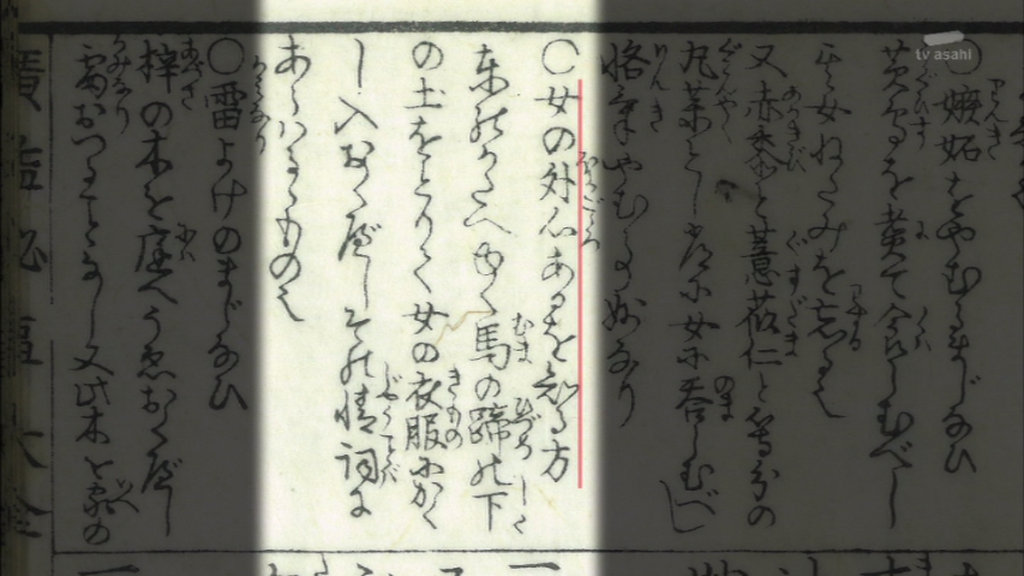 tv asahi
○嫉妬をやむるまじなひ
黄鳥を煮て食はしむべし
其女ねたみを忘るゝ也
又赤黍と薏苡仁と等分の
丸薬とし常に女に呑しむべし
悋気やむこと妙なり
○女の外心あるを知る方
東のかたへゆく馬の蹄の下
の土をとりて女の衣服にかく
し入おくべしその情詞に
あらはるゝもの也
○雷よけのまじなひ
梓の木を庭へうゑおくべし
雷おつることなし又此木を家の